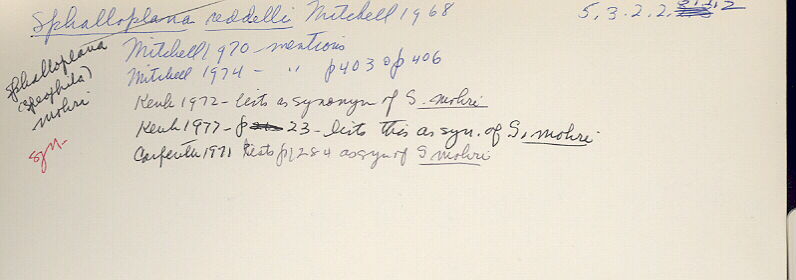 Sphalloplana reddelli Mitchell 1968 5.3.2.2.
Sphalloplana
(speophila)
mohri
syn.
Mitchell 1970 - mentions
Mitchell 1974 - " p403 & p406
Kenk 1972 - lists as synonym of S. mohri
Kenk 1977 - p 23 - lists this as syn. of S. mohri
Carpenter 1971 lists p1284 as syn of S mohri